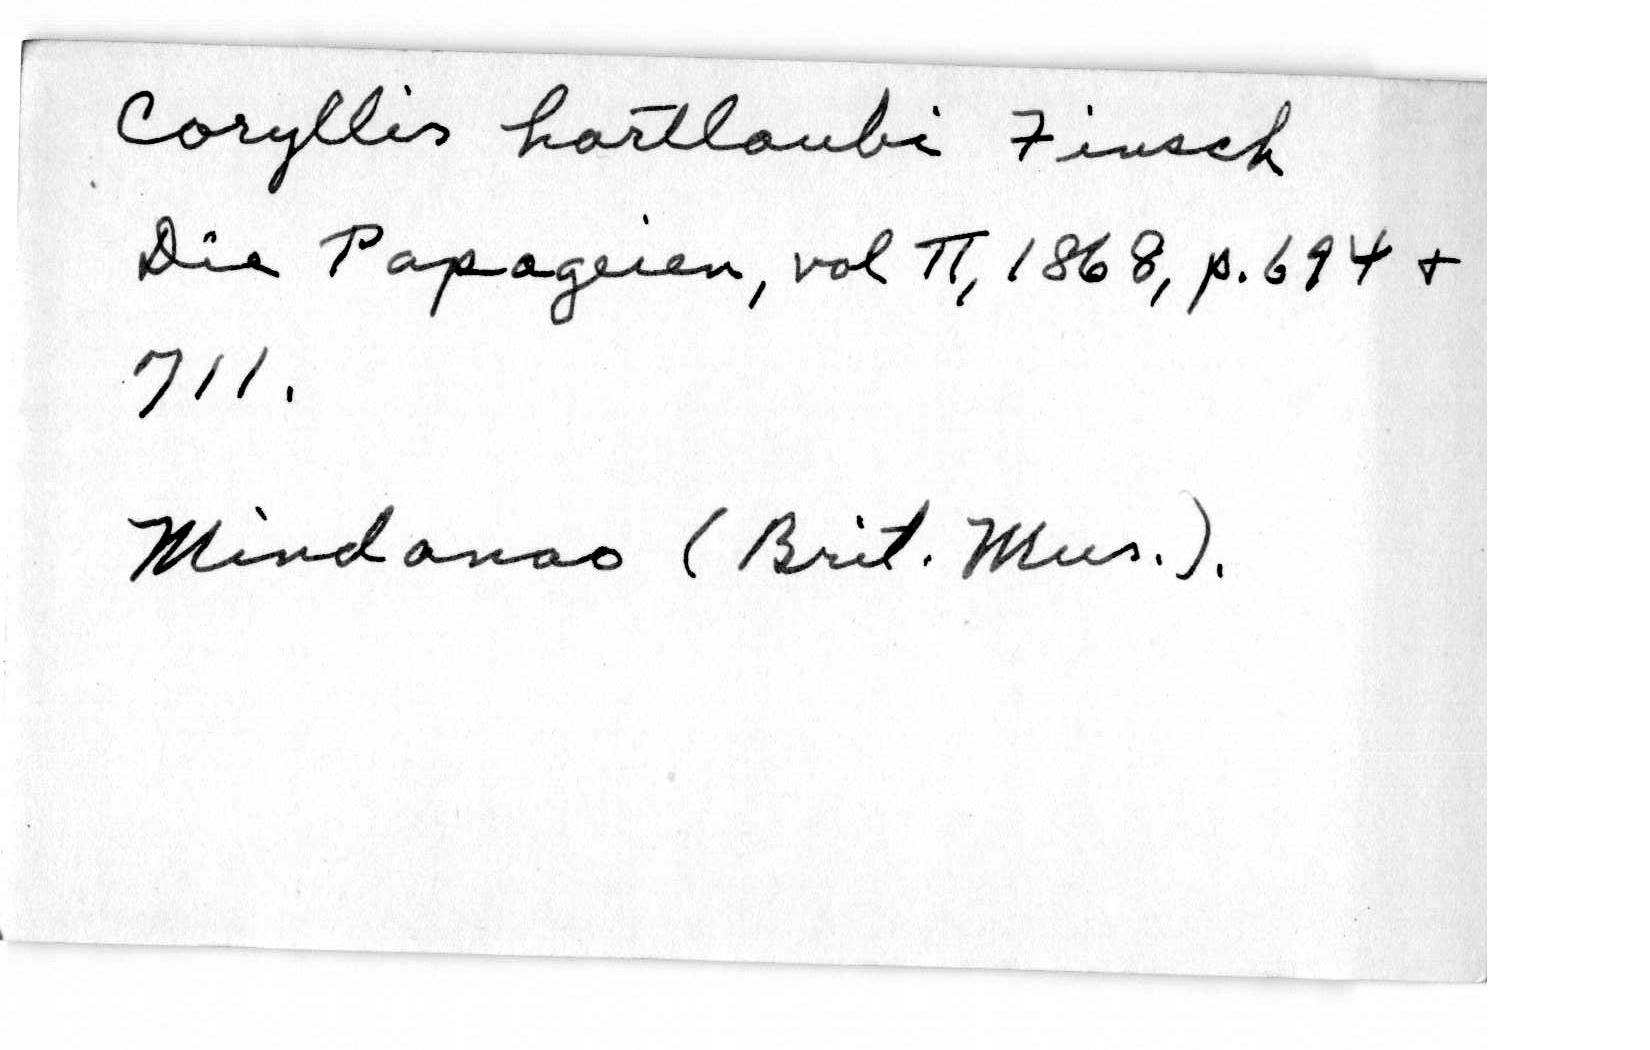 Coryllis hartlaubi Finsch
Die Papageien, vol II, 1868, p. 694 +
711.
Mindanao (Brit. Mus.).